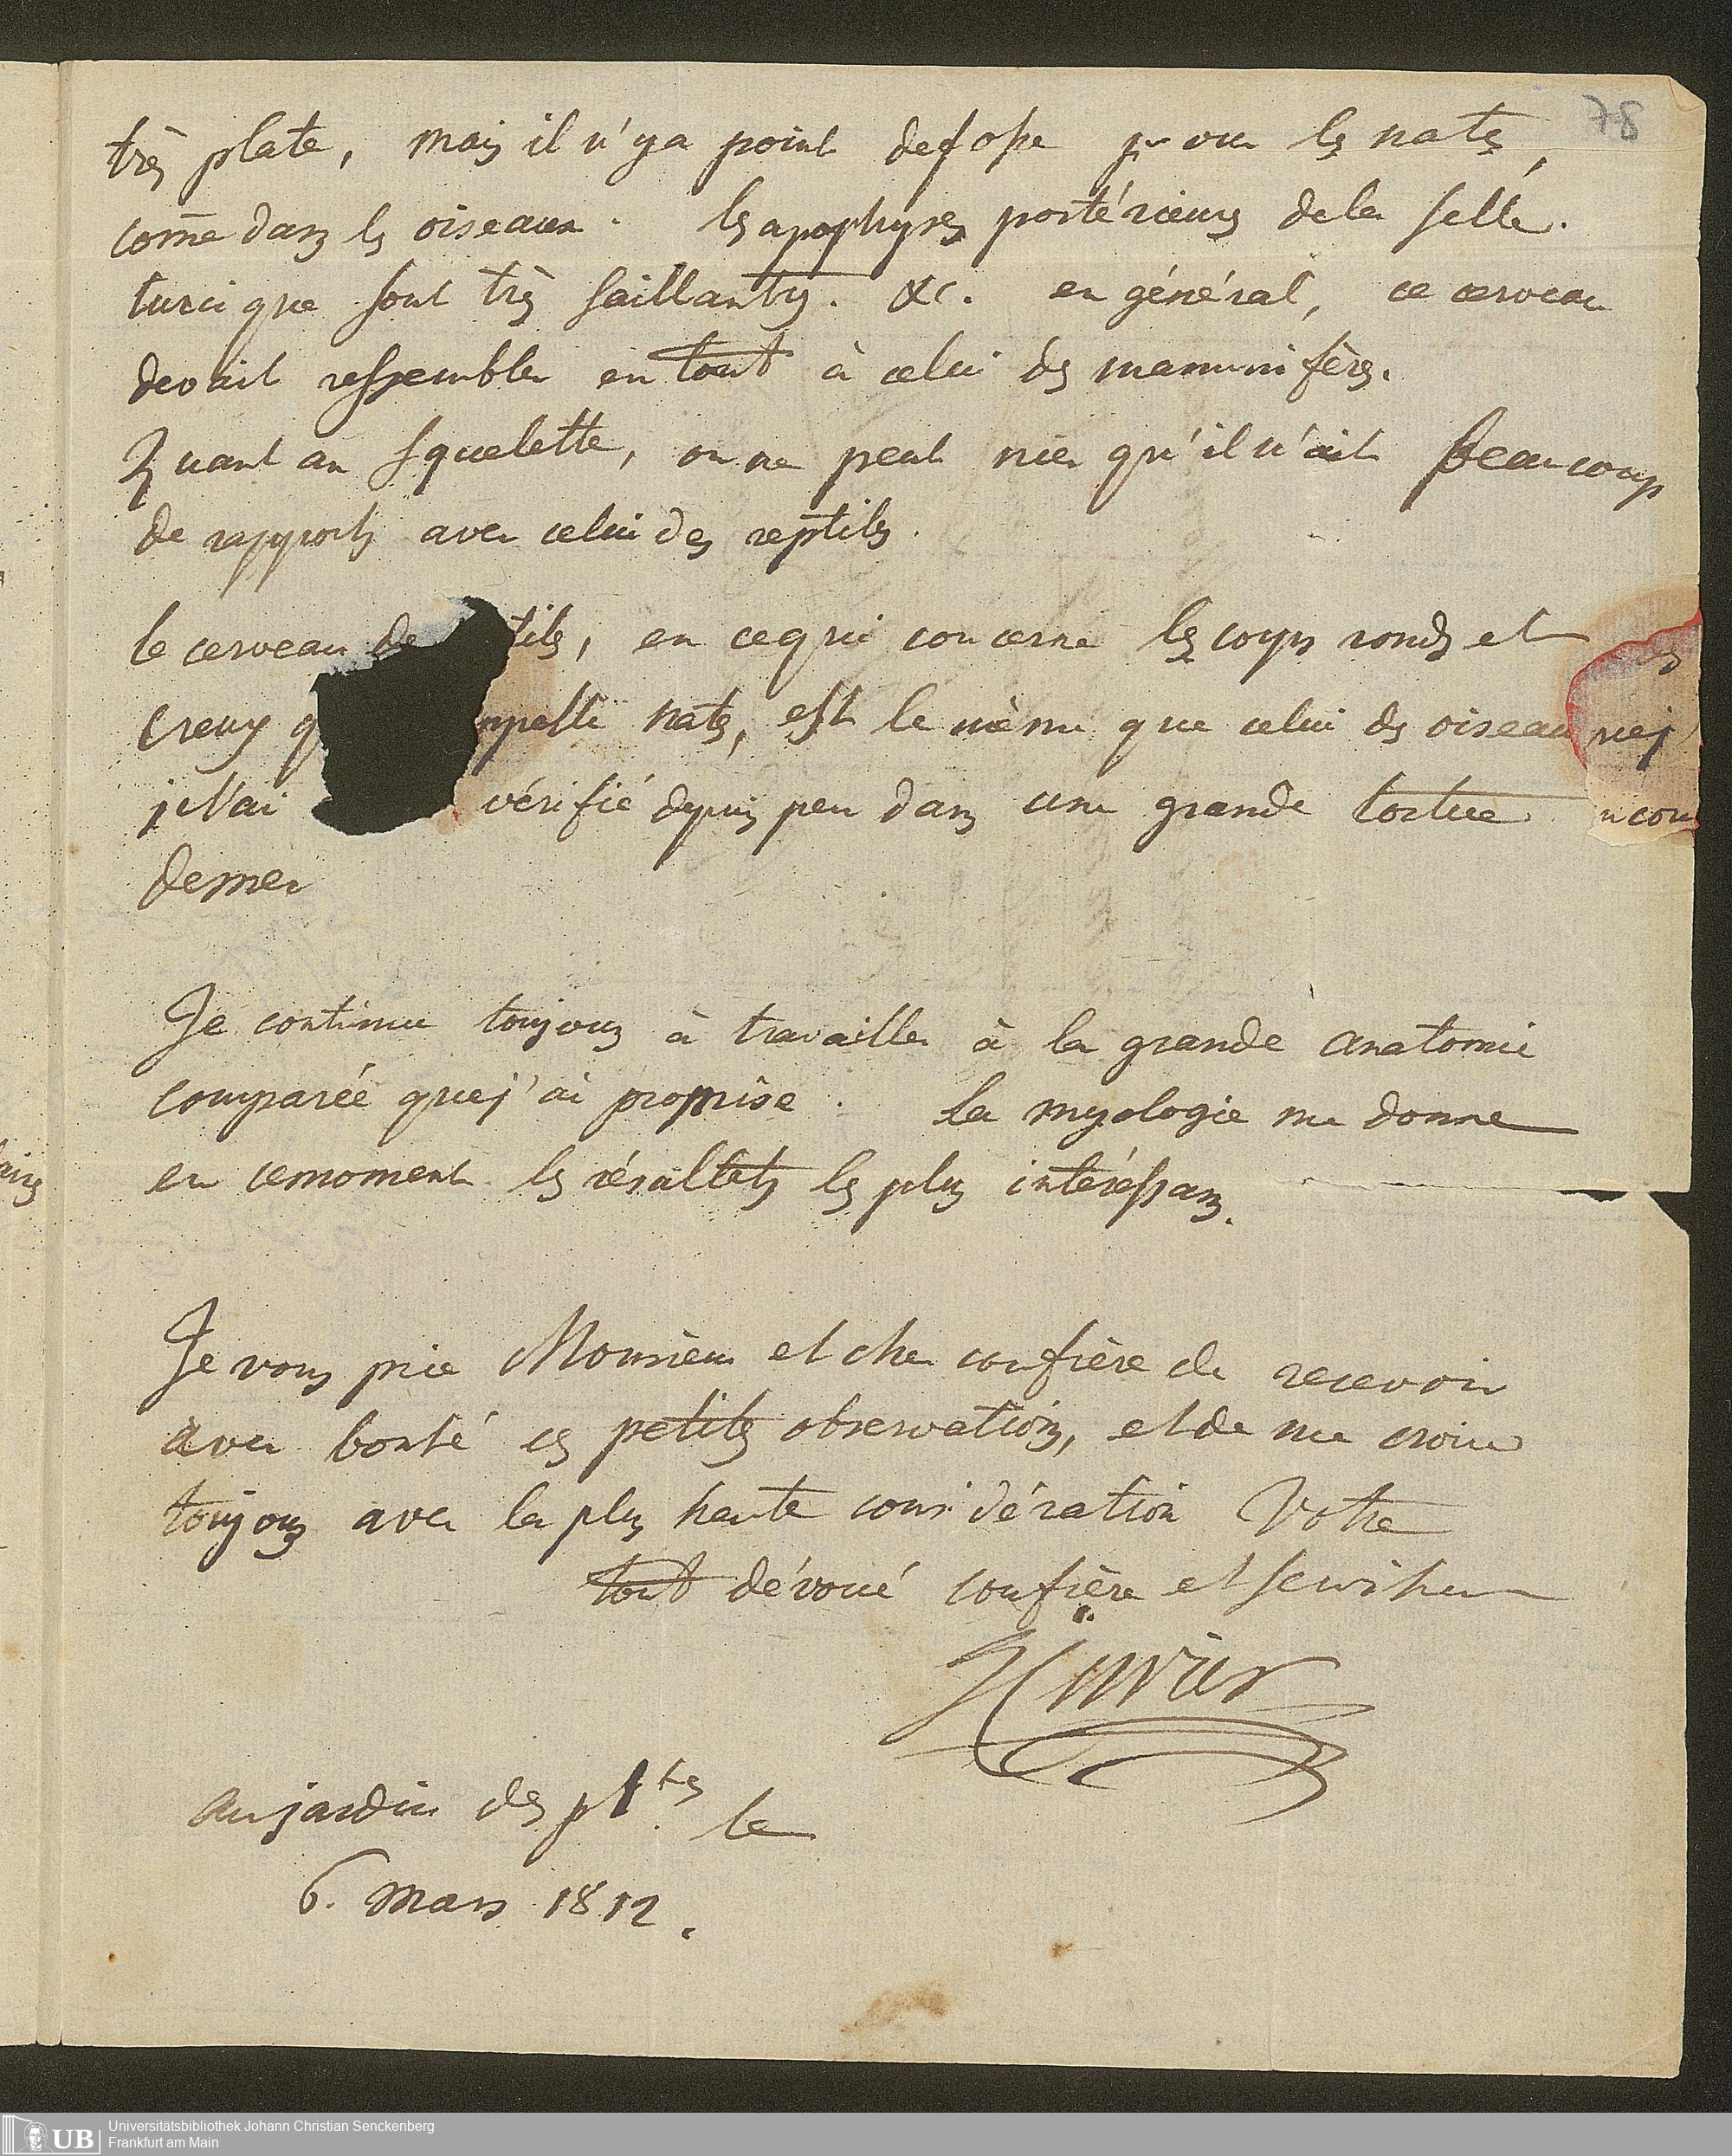 78
très plate, mais il n'y a point de fosse pour les nates,
com̄e dans les oiseaux. les apophyses postérieures de la selle
turcique sont très saillantes. &c. en général, ce cerveau
devait ressembler en tout à celui des mammifères.
Quant au squelette, on ne peut nier qu'il n'ait beaucoup
de rapports avec celui des reptiles.
le cerveau de tiles, en ce qui concerne les corps ronds et
creux q appelle nates, est le même que celui des oiseau nej'
je l'ai vérifié depuis peu dans une grande tortue ncou
de mer
Je continue toujours à travailler à la grande anatomie
comparée que j'ai promise. La myologie me donne
en ce moment les résultats les plus intéressans.
Je vous prie Monsieur et cher confrère de recevoir
avec bonté ces petites observations, et de me croire
toujours avec la plus haute considération Votre
tout dévoué confrère et serviteur
G Cuvier
au jardin des pl.tes le
6. mars 1812.
Universitätsbibliothek Johann Christian Senckenberg
UB Frankfurt am Main